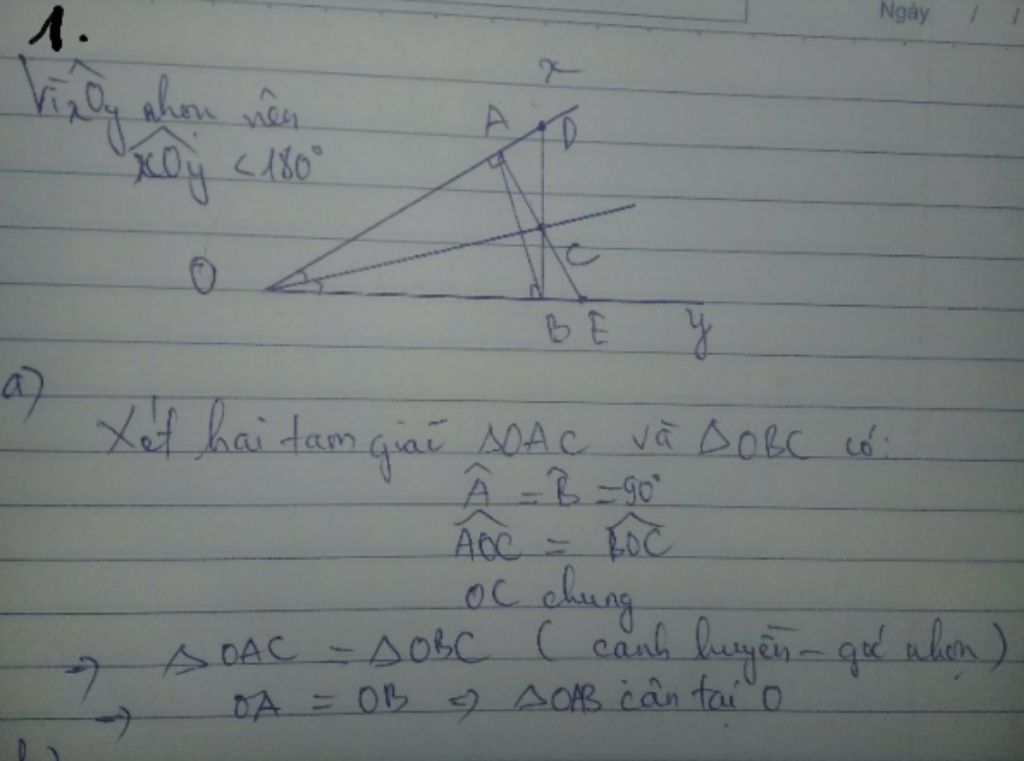 Ngày / /
1.
Vì xÔy nhọn nên
xÔy < 180°
x
A
D
O
C
B E y
a)
Xét hai tam giác ΔOAC và ΔOBC có:
Â = B̂ = 90°
AOC = BOC
OC chung
=> ΔOAC = ΔOBC (cạnh huyền - góc nhọn)
=> OA = OB => ΔOAB cân tại O
b)